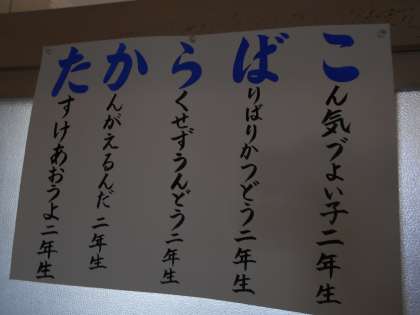 こん気づよい子二年生
ばりばりかつどう二年生
らくせずうんどう二年生
かんがえるんだ二年生
たすけあおうよ二年生